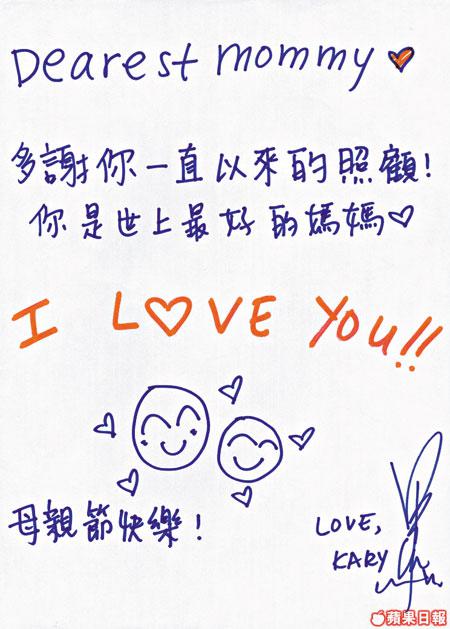 Dearest mommy
多謝你一直以來的照顧!
你是世上最好的媽媽♡
I L♡VE You!!
母親節快樂!
LOVE,
KARY
蘋果日報